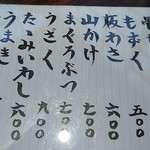 もずく 五〇〇
板わさ 六〇〇
山かけ 七〇〇
まぐろぶつ 七〇〇
うざく 九〇〇
たたみいわし 六〇〇
うまき